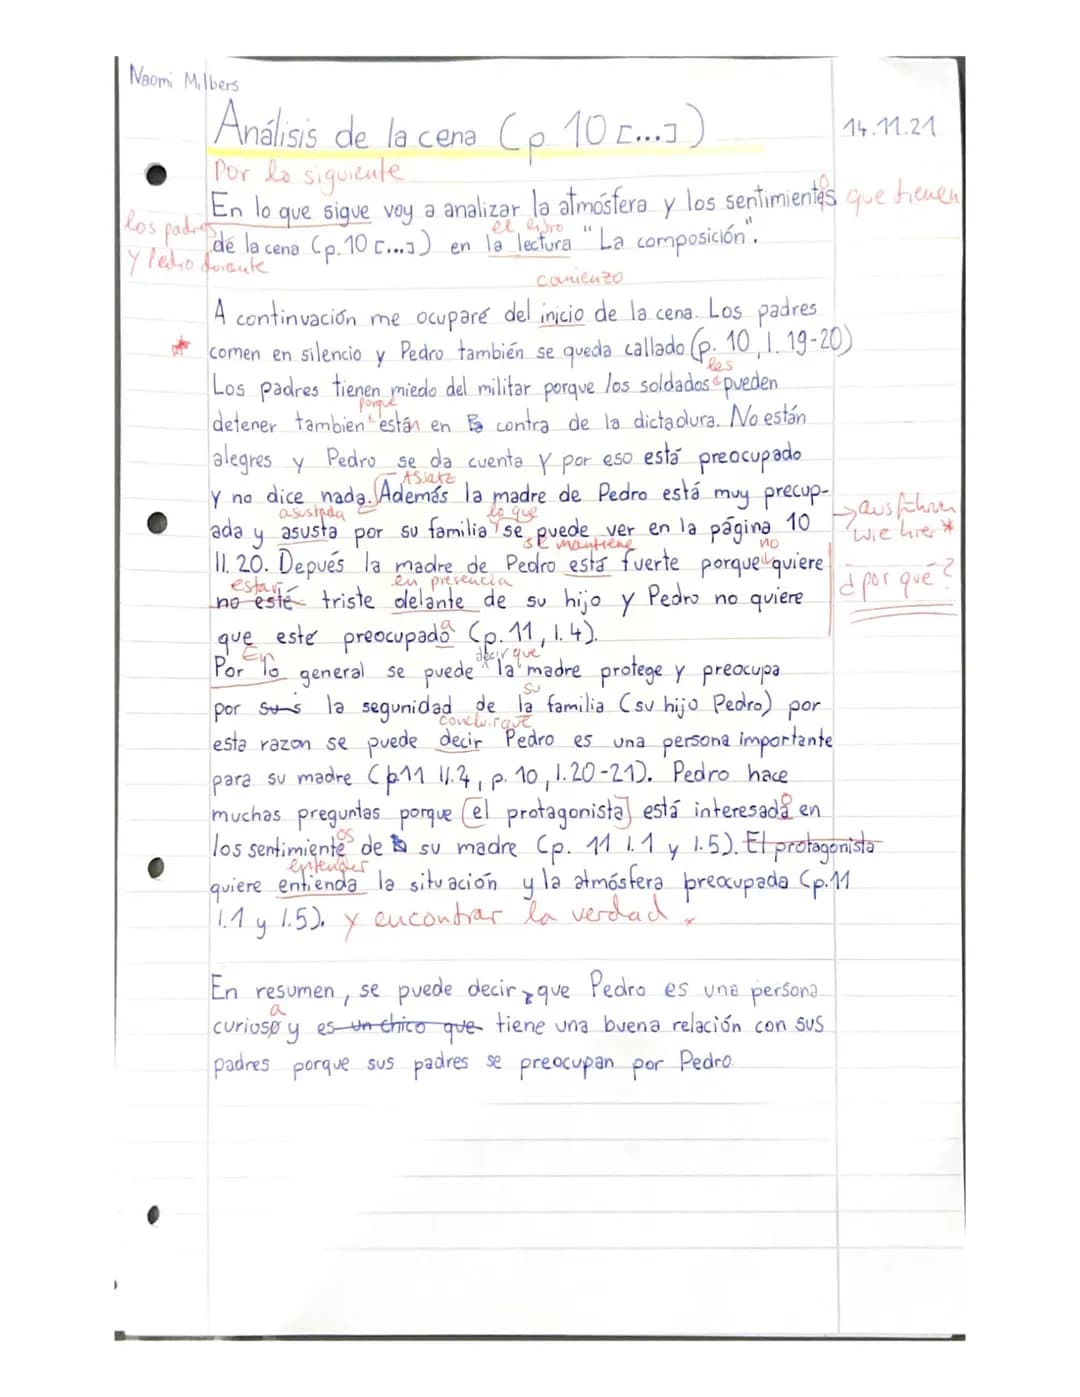 Naomi Milbers
Análisis de la cena (p 10 [...])
14.11.21
Por lo siguiente
En lo que sigue voy a analizar la atmósfera y los sentimientes que tienen
o
los padres
el libro
de la cena (p. 10 [...]) en la lectura "La composición".
y Pedro durante
comienzo
A continuación me ocuparé del inicio de la cena. Los padres
* comen en silencio y Pedro también se queda callado (p. 10, l. 19-20)
les
Los padres tienen miedo del militar porque los soldados pueden
porque
detener tambien están en contra de la dictadura. No están
alegres y Pedro se da cuenta y por eso está preocupado
Absatz
y no dice nada. Además la madre de Pedro está muy precup-
→ ausführen
asustada
lo que
ada y asusta por su familia se puede ver en la página 10
wie hier *
se mantiene
no
ll. 20. Depués la madre de Pedro está fuerte porque quiere
¿por qué?
estar
en presencia
no esté triste delante de su hijo y Pedro no quiere
a
que esté preocupado (p. 11, l. 4).
En
decir que
Por lo general se puede la madre protege y preocupa
su
por sus la segunidad de la familia (su hijo Pedro) por
concluir que
esta razon se puede decir Pedro es una persona importante
para su madre (p11 ll.4, p. 10, l.20-21). Pedro hace
o
muchas preguntas porque [el protagonista] está interesada en
os
los sentimiente de su madre (p. 11 l.1 y l.5). El protagonista
entender
quiere entienda la situación y la atmósfera preocupada (p.11
l.1 y l.5). y encontrar la verdad.
En resumen, se puede decir, que Pedro es una persona
a
curioso y es un chico que tiene una buena relación con sus
padres porque sus padres se preocupan por Pedro.